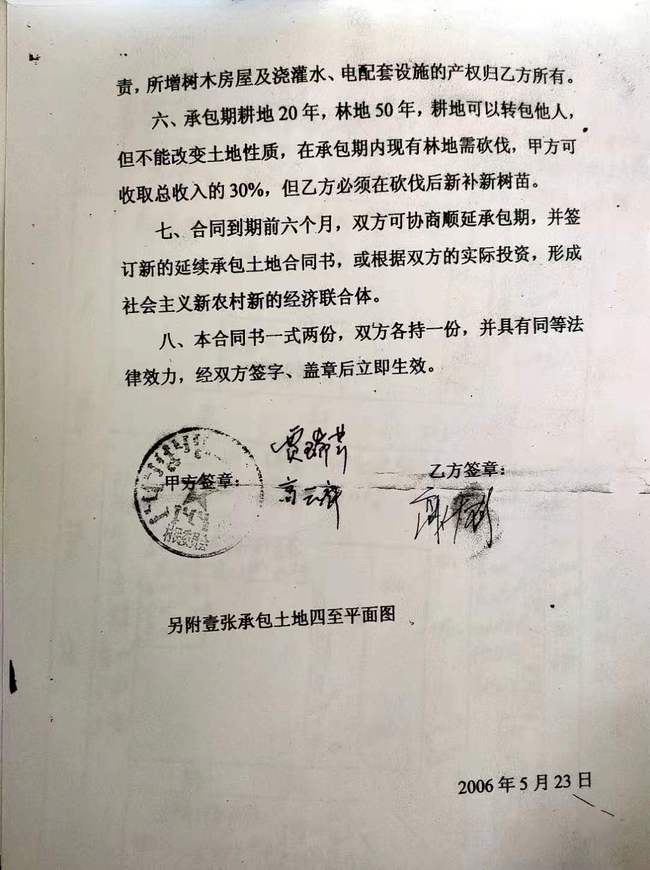 责，所增树木房屋及浇灌水、电配套设施的产权归乙方所有。
六、承包期耕地20年，林地50年，耕地可以转包他人，
但不能改变土地性质，在承包期内现有林地需砍伐，甲方可
收取总收入的30%，但乙方必须在砍伐后新补新树苗。
七、合同到期前六个月，双方可协商顺延承包期，并签
订新的延续承包土地合同书，或根据双方的实际投资，形成
社会主义新农村新的经济联合体。
八、本合同书一式两份，双方各持一份，并具有同等法
律效力，经双方签字、盖章后立即生效。
甲方签章：
乙方签章：
另附壹张承包土地四至平面图
2006年5月23日